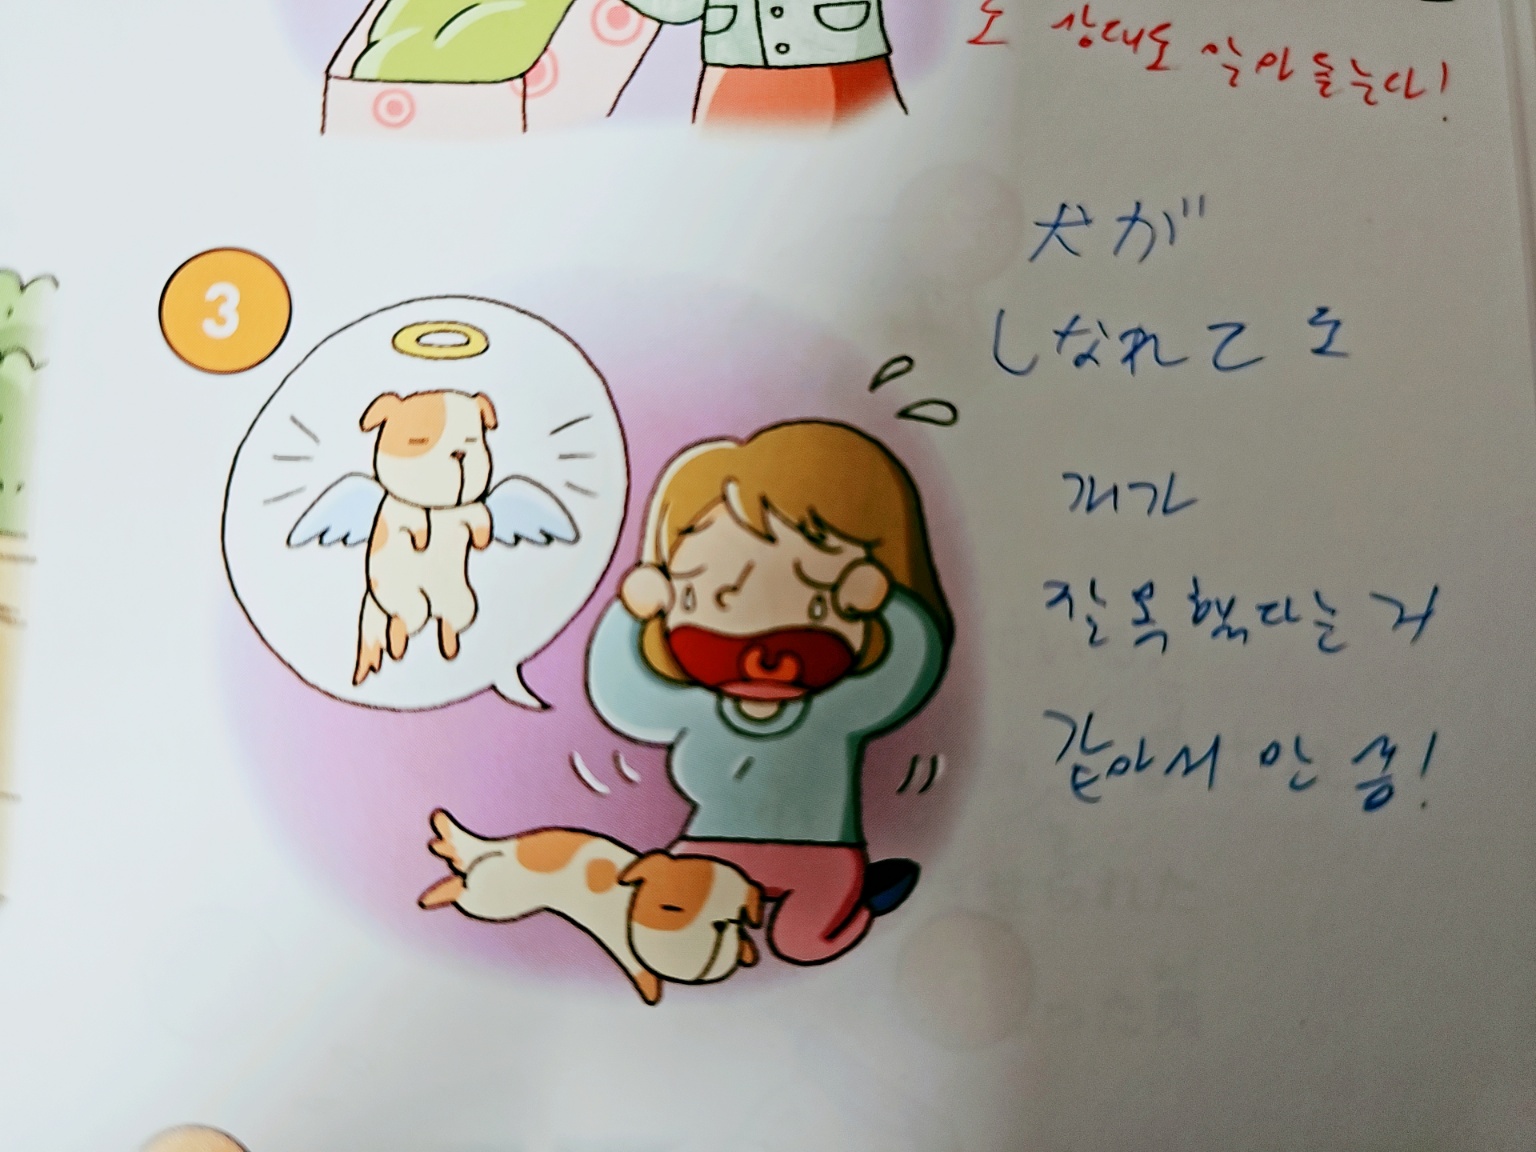 도 상대도 알아 듣는다!
犬が
しなれても
3
개가
잘못했다는 거
같아서 안 좋!